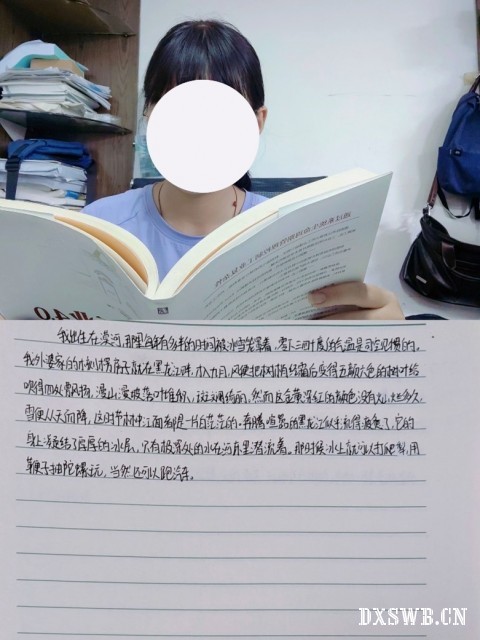 我出生在漠河,那里每年有多半的日子被冰雪笼罩着,零下三四十度的气温是司空见惯的。
我外婆家的木刻楞房子就在黑龙江畔,才入九月,风便把树梢经霜后变得五颜六色的树叶给
吹得四处飘扬,漫山漫坡落叶堆积,斑斓绚丽,然而这金黄深红的颜色没有灿烂多久,
雪便从天而降,这时节林中江面都是一片白茫茫的,奔腾喧嚣的黑龙江似乎流得疲惫了,它的
身上凝结了厚厚的冰层,只有极深处的水在河床里潜流着。那时候冰上就可以打爬犁,用
鞭子抽陀螺玩,当然还可以跑汽车。
DXSWB.CN